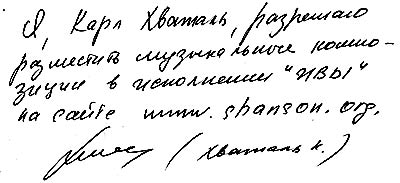 Я, Карл Хваталь, разрешаю
разместить музыкальные компо-
зиции в исполнении "ИВЫ"
на сайте www.shanson.org.
(Хваталь К.)